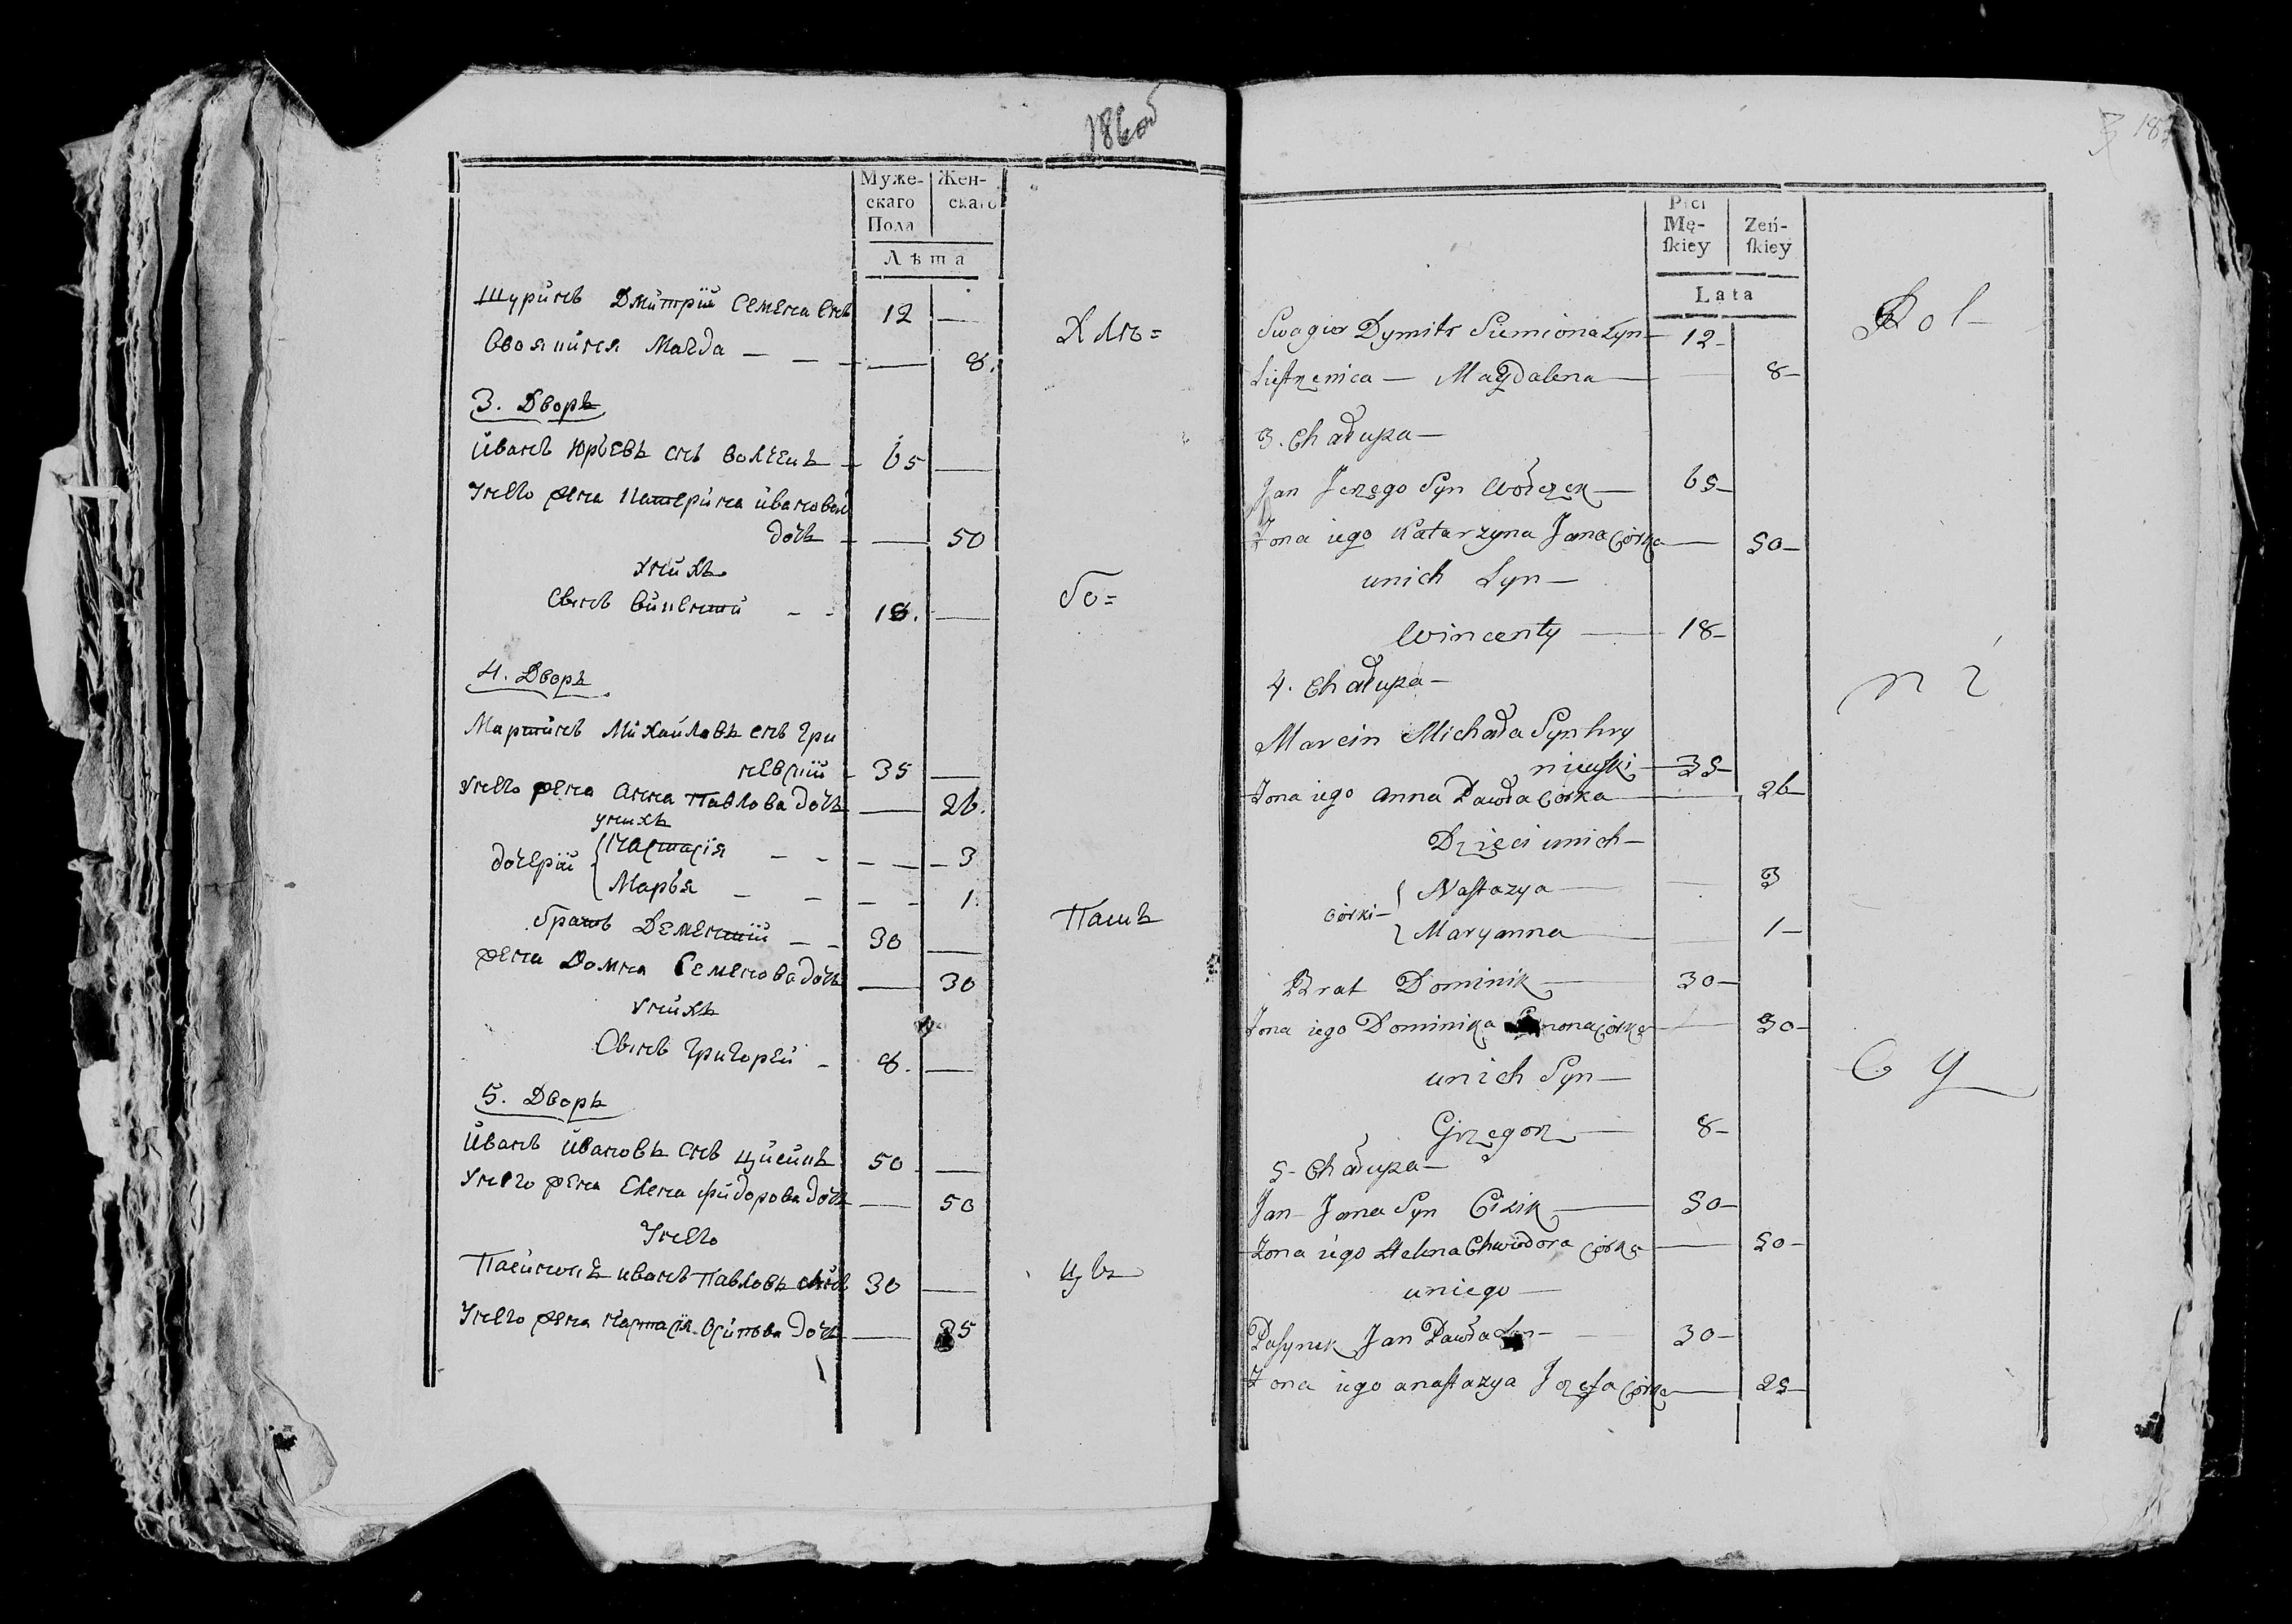 186об
Муже- Жен-
скаго скаго
Пола
Лѣта
Шуринъ Дмитрій Семена снъ 12 —
Своячиня Магда — — — — 8.
Хлѣ=
3. Дворъ
Иванъ Юрьевъ снъ Волчекъ — 65 —
Унего жена Катерина иванова
дочь — — 50
Унихъ
Сынъ Викентй — — 18. —
бо=
4. Дворъ
Мартинъ Михайловъ снъ Гри
невскій — 35 —
Унего жена Анна Павлова дочь — 26.
унихъ
дочерій { Настасія — — — — — 3
Марья — — — — 1.
братъ Дементій — — 30 —
Пашъ
жена Домна Семенова дочь — 30
Унихъ
Сынъ Григорей — 8. —
5. Дворъ
Иванъ Ивановъ снъ Цизикъ 50 —
Унего жена Елена Фидорова дочь — 50
Унего
Пасинокъ иванъ Павловъ 30 —
Цы
Унего жена Настасія Осипова дочь — 25
Płci
Mę- Żeń-
ſkiey ſkiey
Lata
Swagier Dymitr Siemiona Syn — 12 —
Rol —
Siestrzenica — Magdalena — — 8 —
3. Chałupa —
Jan Jerzego Syn Wołczek — 65 —
Żona iego Katarzyna Jana Córka — 50 —
unich Syn —
Wincenty — 18 —
n i
4. Chałupa —
Marcin Michała Syn hry
niewski — 35 —
Żona iego Anna Pawła Córka — 26
Dzieci unich —
Córki — { Nastazya — — 3
Maryanna — — 1 —
Brat Dominik — 30 —
Żona iego Dominika Córka — 30 —
unich Syn —
c y
Grzegorz — 8 —
5 — Chałupa —
Jan Jana Syn Cizik — 50 —
Żona iego Helena Chwiedora Córka — 50 —
uniego —
Pasynek Jan Pawła Syn — 30 —
Żona iego Anastazya Jozefa Córka — 25 —